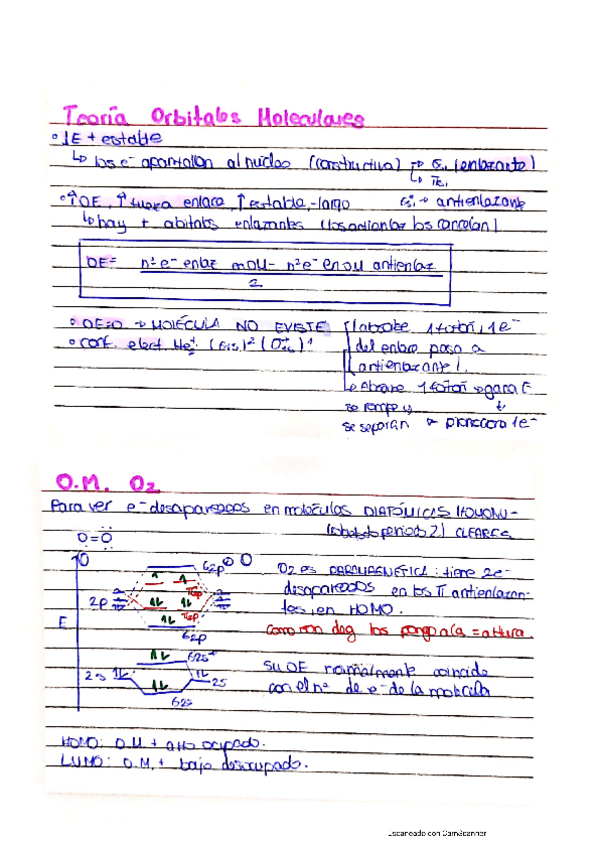 Teoría Orbitales Moleculares
° ↓E + estable
↳ los e⁻ apantallan al núcleo (constructiva) (enlazante)
° ↑OE, ↑ fuerza enlace, ↑ estable, - largo → antienlazante
↳ hay + orbitales enlazantes (los antienlaz los cancelan)
OE = nº e⁻ enlaz en OM - nº e⁻ en OM antienlaz
2
° OE=0 → MOLÉCULA NO EXISTE absorbe 1 fotón, 1 e⁻
° conf. elect. He₂⁺ del enlace pasa a
antienlazante
1 fotón gana E
se rompe y
se separan 1e⁻
O.M. O₂
Para ver e⁻ desapareados en moléculas DIATÓMICAS HOMONU-
CLEARES (periodo 2)
O=O
O O
O₂ es PARAMAGNÉTICA: tiene 2e⁻
desapareados en los π antienlazan-
tes, en HOMO.
como son deg los pongo a la = altura.
σ2p
π2p
2p
π2p
E
σ2p
σ2s*
2s 2s
σ2s
Su OE normalmente coincide
con el nº de e⁻ de la molécula
HOMO: O.M + alto ocupado.
LUMO: O.M. + bajo desocupado.
Escaneado con CamScanner